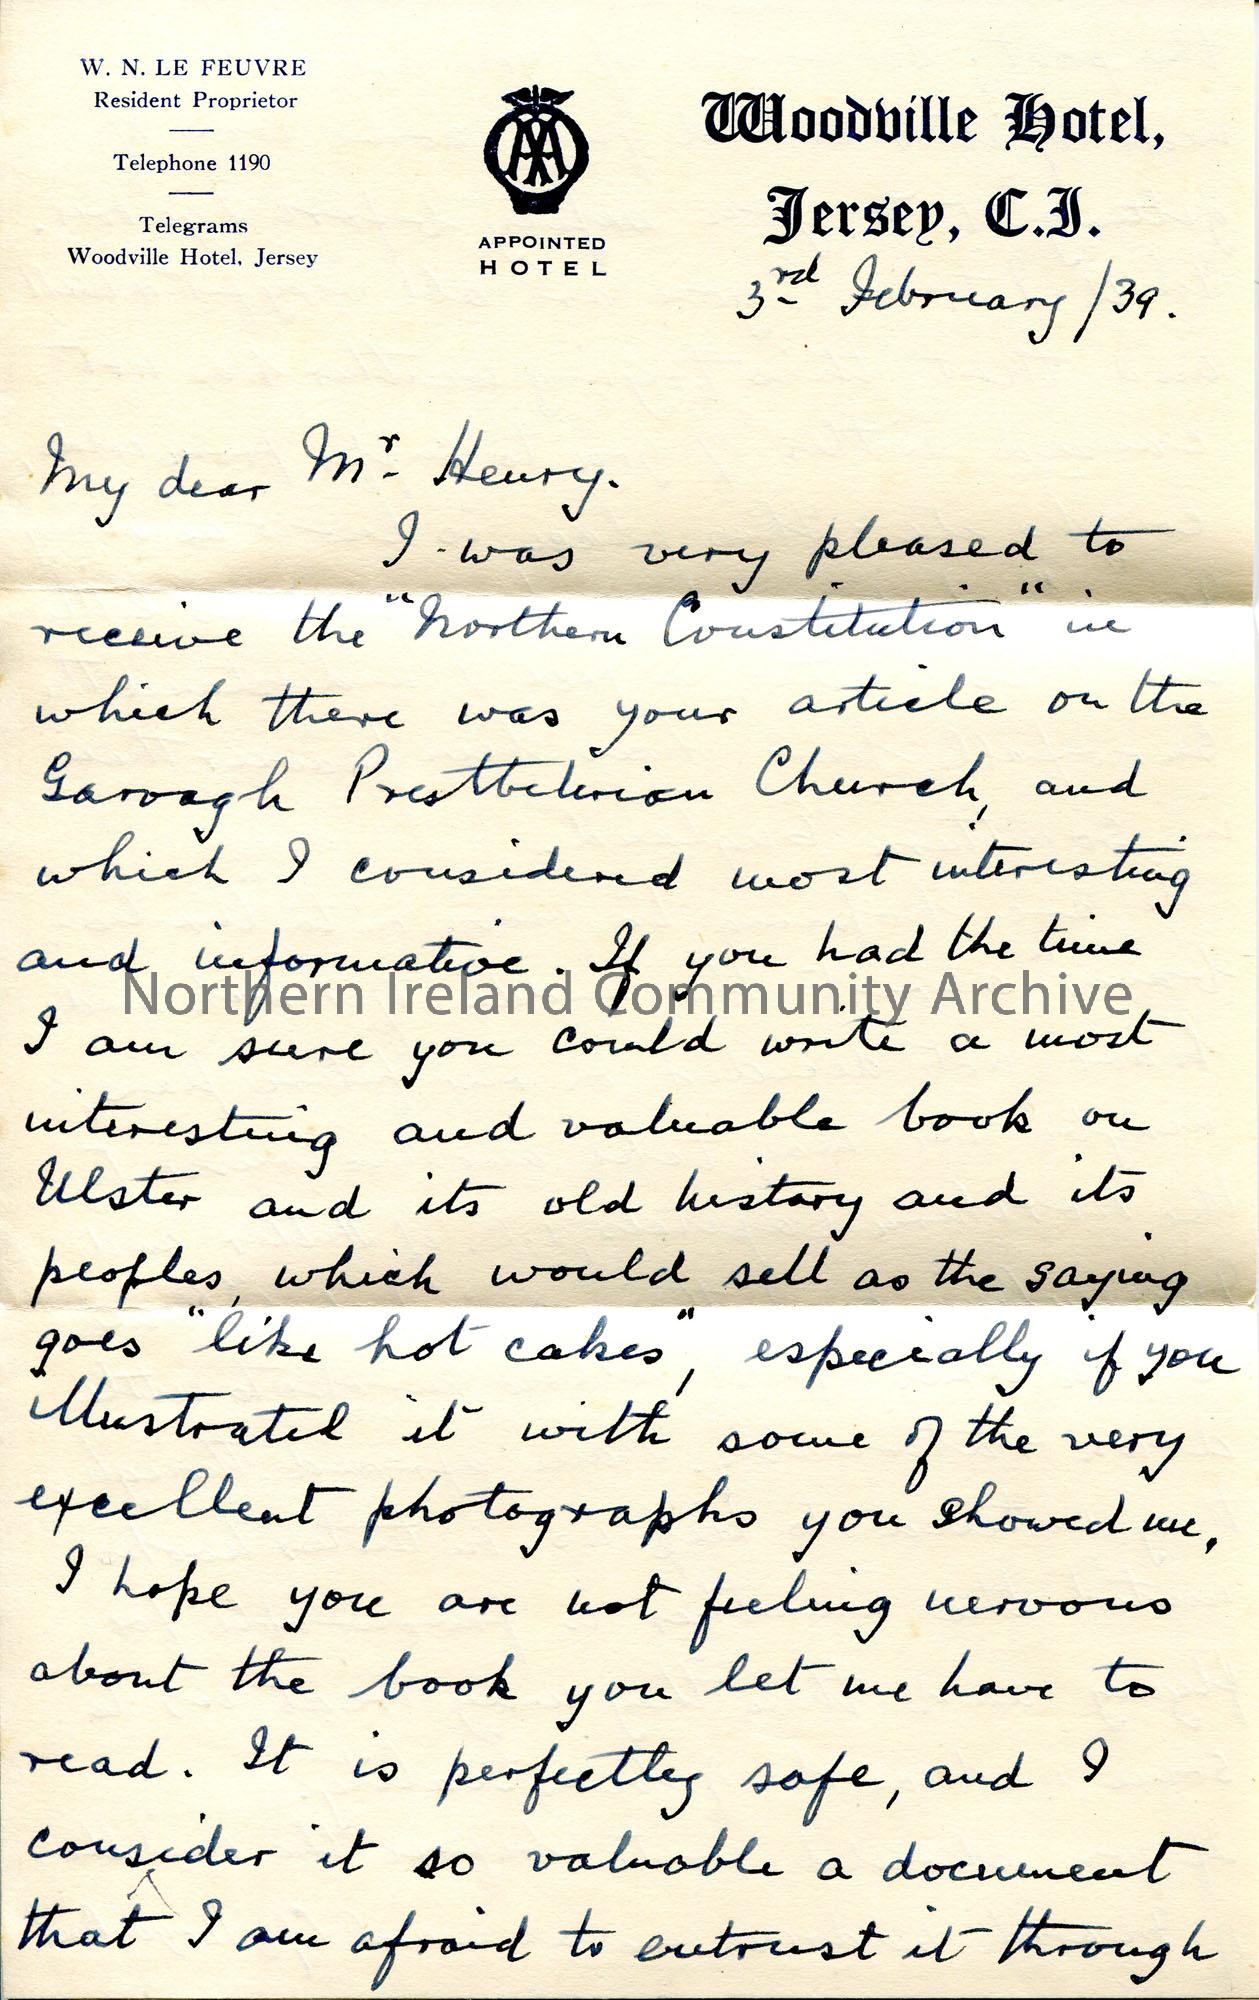 W. N. LE FEUVRE
Resident Proprietor
Telephone 1190
Telegrams
Woodville Hotel, Jersey
AA
APPOINTED
HOTEL
Woodville Hotel,
Jersey, C.I.
3rd February /39.
My dear Mr Henry.
I was very pleased to
receive the "Northern Constitution" in
which there was your article on the
Garvagh Prestbeterian Church, and
which I considered most interesting
and informative. If you had the time
Northern Ireland Community Archive
I am sure you could write a most
interesting and valuable book on
Ulster and its old history and its
peoples, which would sell as the saying
goes "like hot cakes", especially if you
illustrated it with some of the very
excellent photographs you showed me.
I hope you are not feeling nervous
about the book you let me have to
read. It is perfectly safe, and I
consider it so valuable a document
that I am afraid to entrust it through